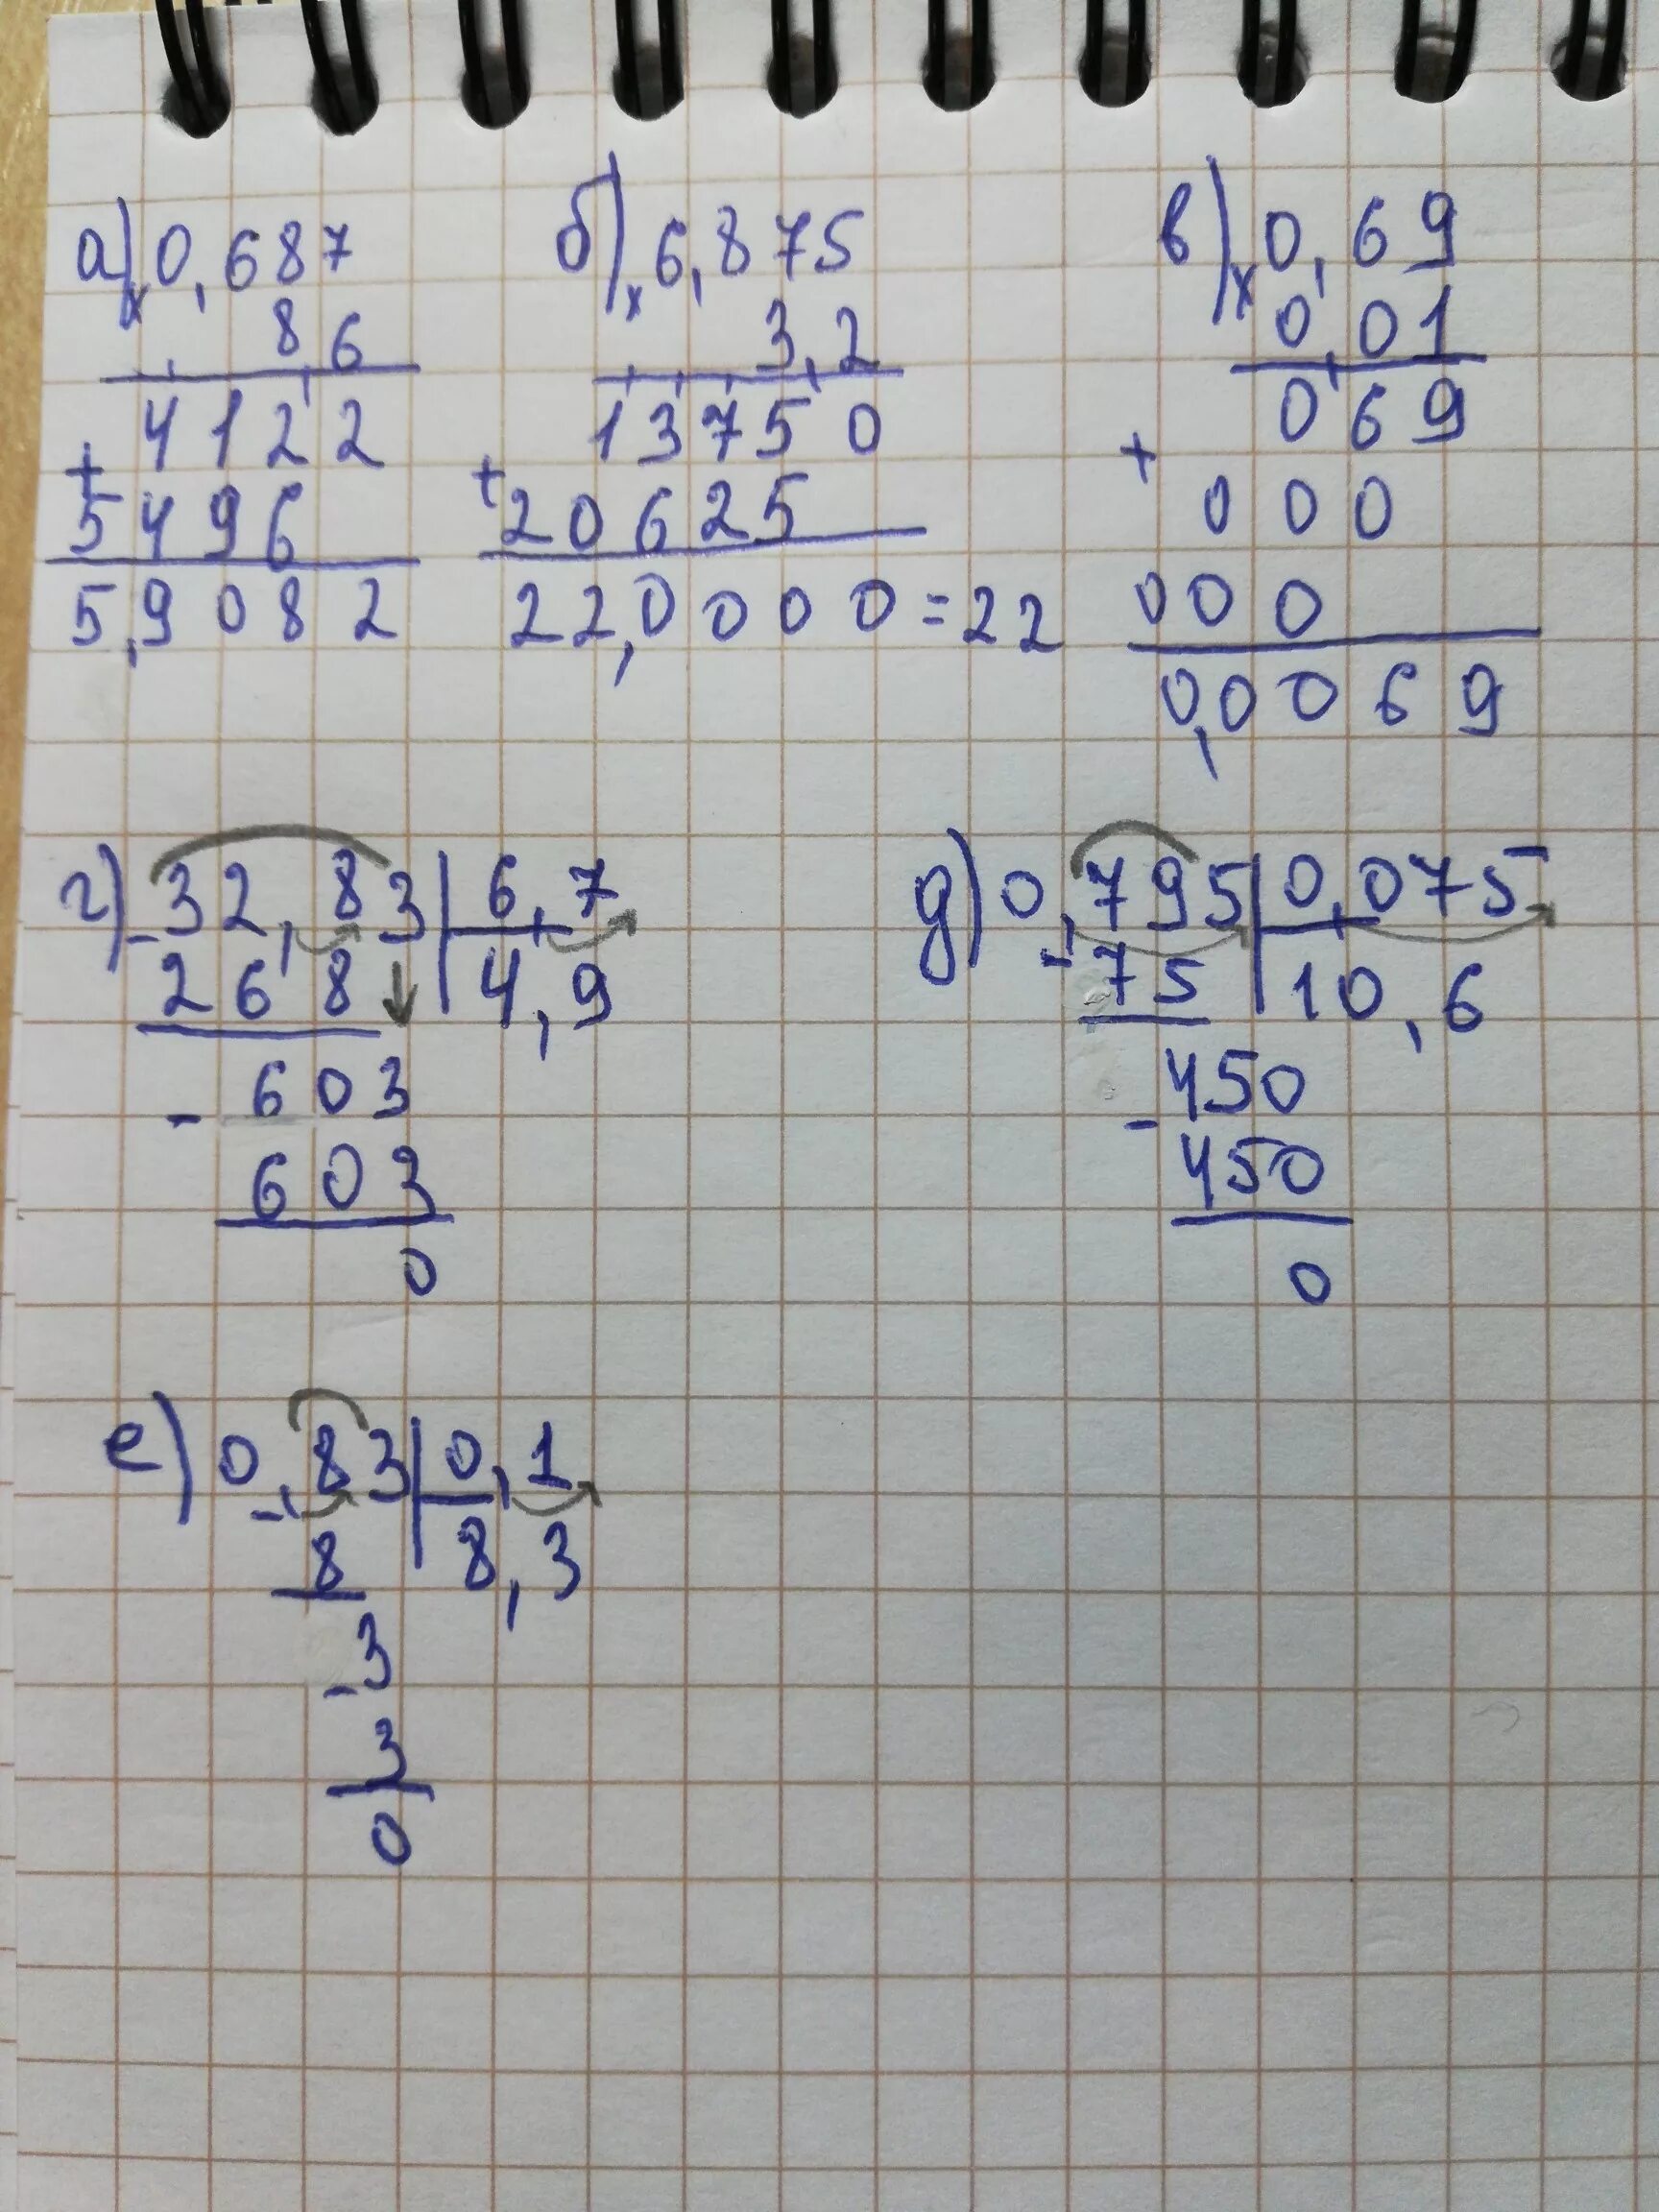 а) × 0,687
86
+ 4122
5496
5,9082
б) × 6,875
3,2
+ 13750
20625
22,0000 = 22
в) × 0,69
0,01
+ 069
000
000
0,0069
г) - 32,83 | 6,7
268 | 4,9
- 603
603
0
д) - 0,795 | 0,075
75 | 10,6
- 450
450
0
е) - 0,83 | 0,1
8 | 8,3
- 3
3
0